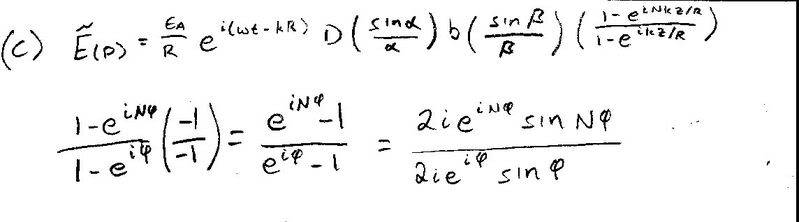 (c) Ẽ(P) = ε_A/R e^{i(ωt-kR)} D (sin α/α) b (sin β/β) ((1-e^{iNkz/R})/(1-e^{ikz/R}))
(1-e^{iNφ})/(1-e^{iφ}) (-1/-1) = (e^{iNφ}-1)/(e^{iφ}-1) = (2ie^{iNφ} sin Nφ)/(2ie^{iφ} sin φ)